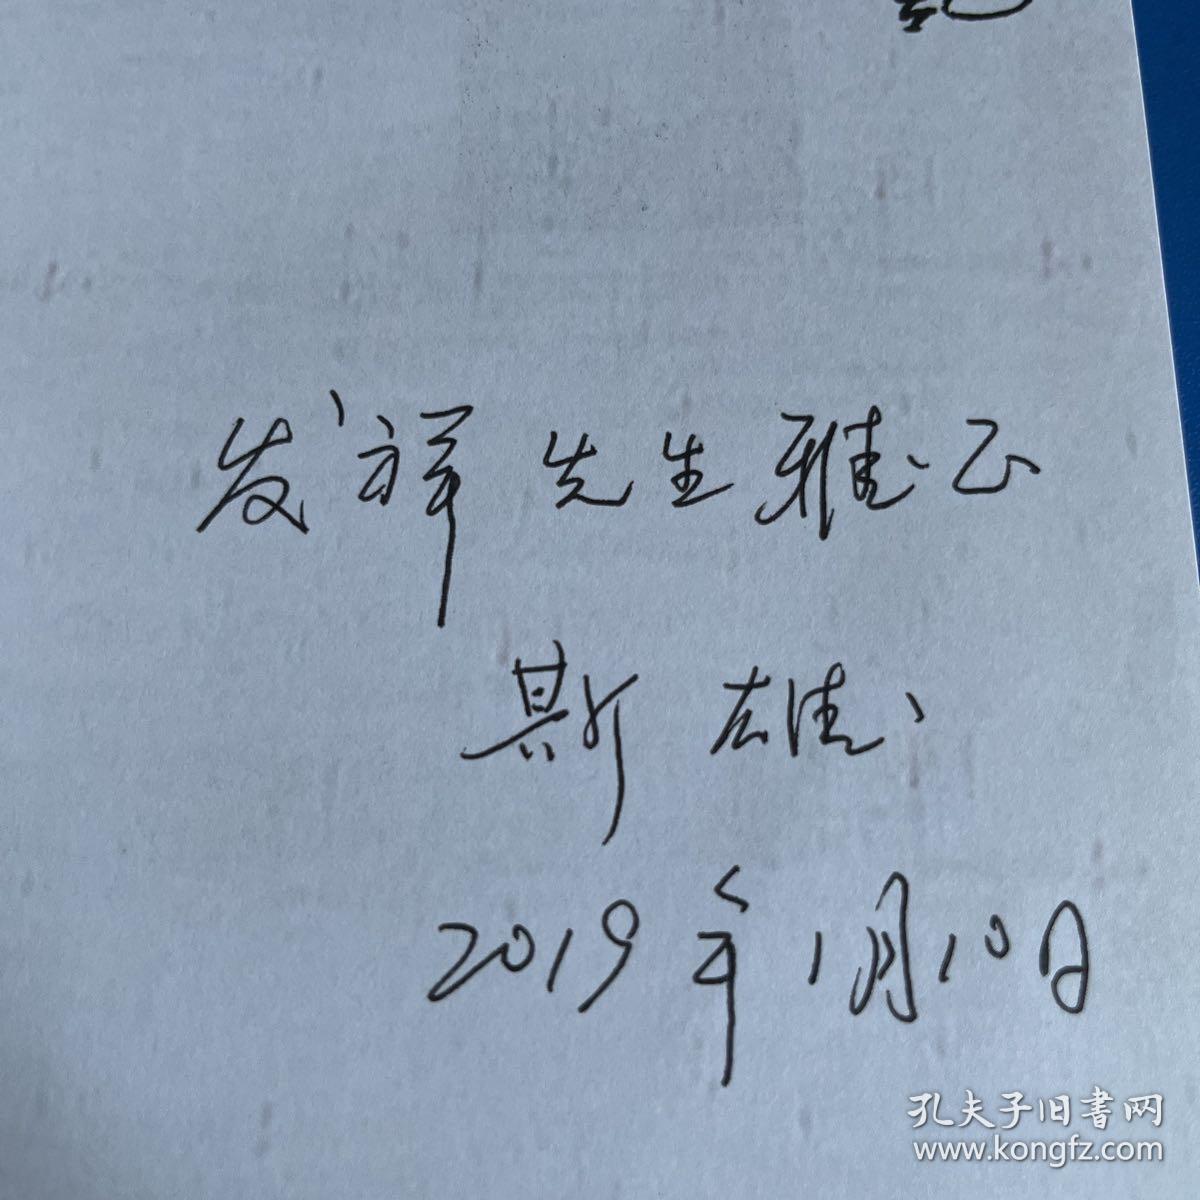 发祥先生雅正
斯雄
2019年1月10日
孔夫子旧书网
www.kongfz.com